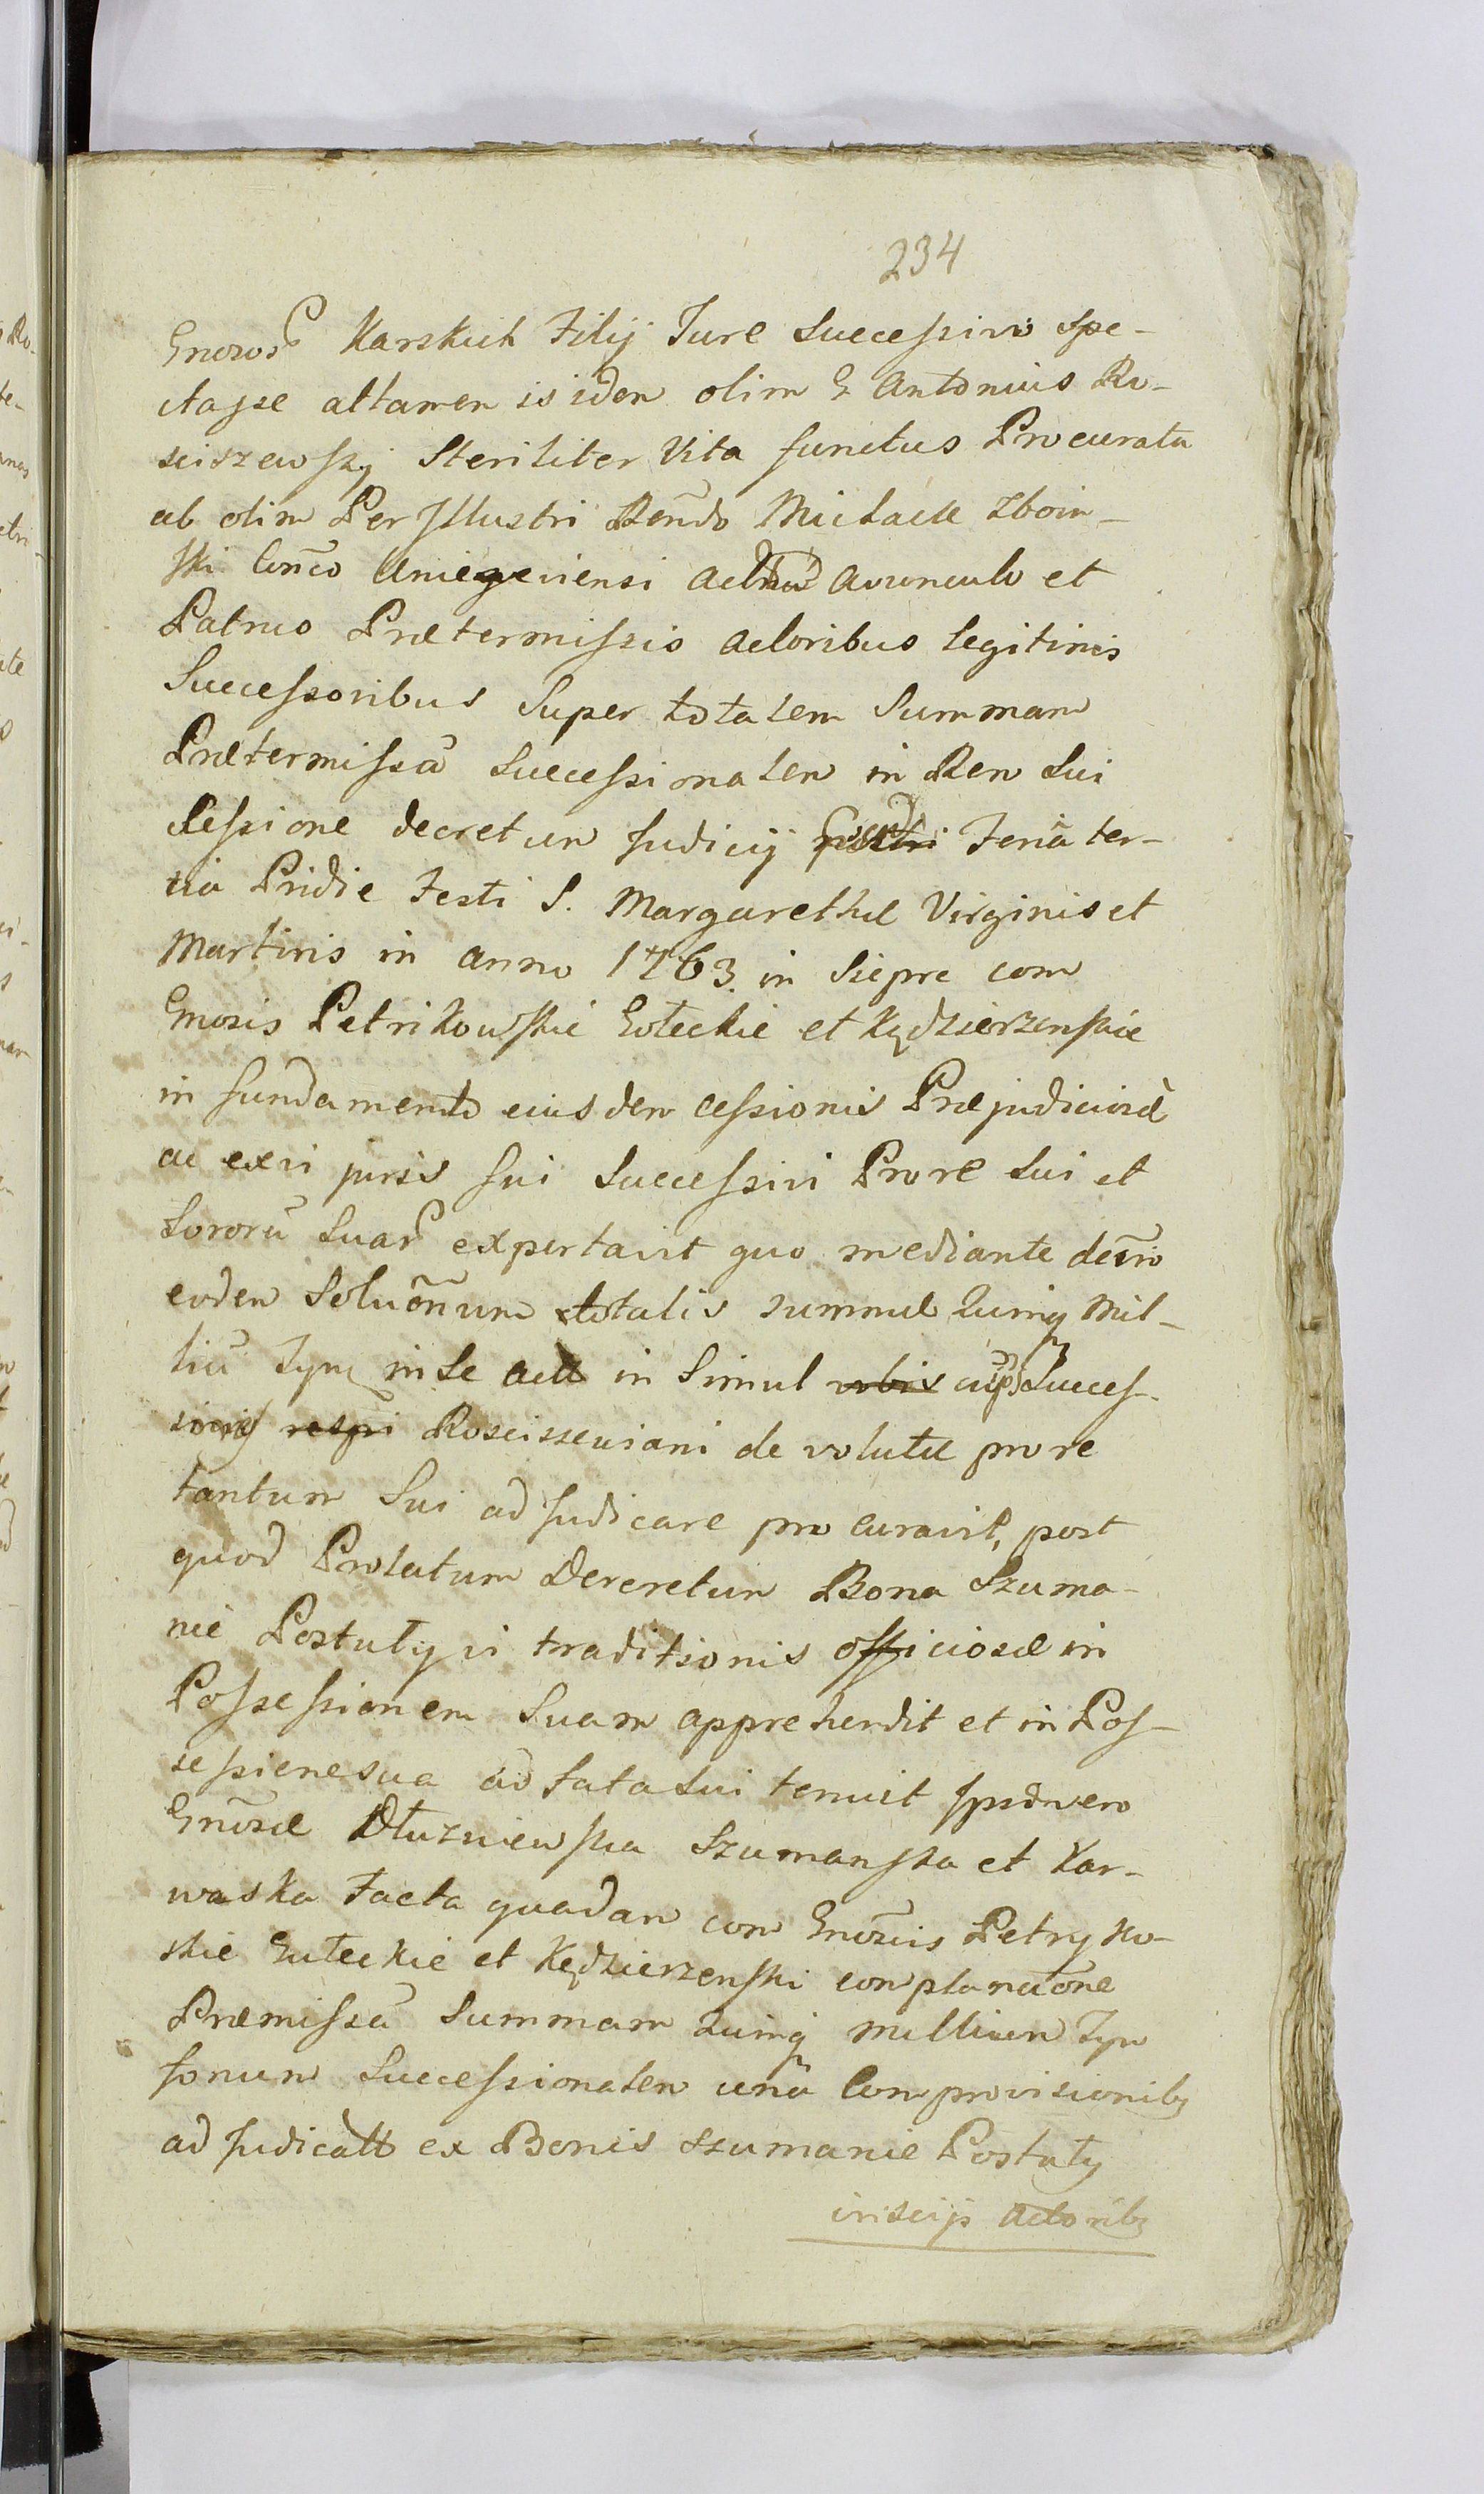 234
Gnosor̃ Karskich Filij Jure Successivo spe-
ctasse attamen is idem olim G Antonius Ro-
sciszewskj Steriliter Vita functus Procurata
ab olim Per Jllustri Rendo Michaele Zboin-
ski Conco actum avunculo et
Patruo Prætermissis actoribus legitimis
Successoribus Super totalem Summam
Prætermissã Successionalem in Rem Sui
Cessione decretum Judicij Feria ter-
tia Pridie Festi S. Margarethæ Virginis et
Martiris in anno 1763. in Siepre com
Gnosis Petrikowskie Goteckie et Kędzierzenskie
in fundamento eiusdem cessionis Præjudiciosè
ac exvi juris sui Successivi Prore Sui et
Sororũ Suar̃ exportavit quo mediante decro
eodem Soluõnum totalis summæ Quinq Mil-
liũ Tynf in Se actt in Simul Succes-
Roscisseviani de volutæ pro re
tantum Sui adjudicare procuravit, post
quod Prolatum Dereretum Bona Szuma-
nie Postuły vi traditionis officiosæ in
Possessionem Suam apprehendit et in Pos-
sessione sua ad fata Sui tenuit vero
Gnosæ Dłuzniewska Szumanska et Kar-
waska Facta quadam com Gnosis Petryko-
skie Guteckie et Kędzierzenski complanatõne
Præmissã Summam Quinq millium Tyn
fonum Successionalem unã Com provisionibq
adjudicatt ex Bonis Szumanie Postuły
insciis Actoribq